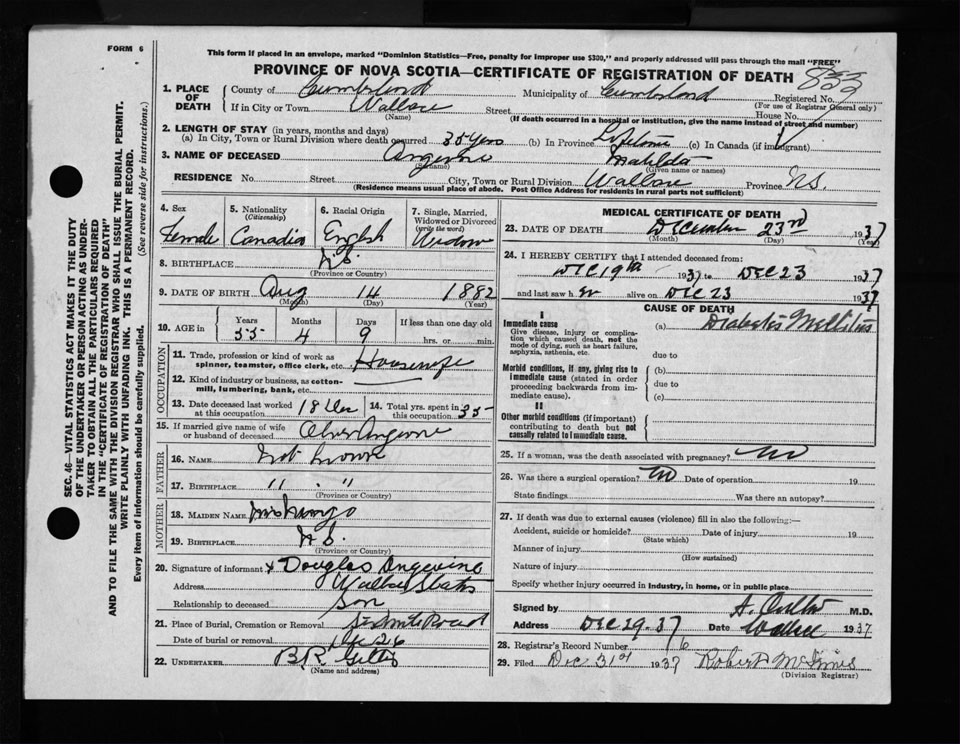 FORM 6
This form if placed in an envelope, marked "Dominion Statistics—Free, penalty for improper use $300," and properly addressed will pass through the mail "FREE"
PROVINCE OF NOVA SCOTIA—CERTIFICATE OF REGISTRATION OF DEATH
1. PLACE OF DEATH County of Cumberland Municipality of Cumberland Registered No. 853
(For use of Registrar General only)
If in City or Town Wallace Street House No.
(Name) (If death occurred in a hospital or institution, give the name instead of street and number)
2. LENGTH OF STAY (in years, months and days)
(a) In City, Town or Rural Division where death occurred 35 years (b) In Province Lifetime (c) In Canada (if immigrant)
3. NAME OF DECEASED Angevine Matilda
(Surname) (Given name or names)
RESIDENCE No. Street City, Town or Rural Division Wallace Province N.S.
(Residence means usual place of abode. Post Office Address for residents in rural parts not sufficient)
4. Sex Female
5. Nationality (Citizenship) Canadian
6. Racial Origin English
7. Single, Married, Widowed or Divorced (write the word) Widow
8. BIRTHPLACE N.S.
(Province or Country)
9. DATE OF BIRTH Aug 14 1882
(Month) (Day) (Year)
10. AGE in Years 55 Months 4 Days 9 If less than one day old hrs. or min.
OCCUPATION
11. Trade, profession or kind of work as spinner, teamster, office clerk, etc. Housewife
12. Kind of industry or business, as cotton-mill, lumbering, bank, etc.
13. Date deceased last worked at this occupation 18 Dec
14. Total yrs. spent in this occupation 35
15. If married give name of wife or husband of deceased Oliver Angevine
FATHER
16. NAME
17. BIRTHPLACE " "
(Province or Country)
MOTHER
18. MAIDEN NAME
19. BIRTHPLACE N S.
(Province or Country)
20. Signature of informant x Douglas Angevine
Address Wallace
Relationship to deceased Son
21. Place of Burial, Cremation or Removal Six Mile Road
Date of burial or removal Dec 26
22. UNDERTAKER B.R Gillis
(Name and address)
MEDICAL CERTIFICATE OF DEATH
23. DATE OF DEATH December 23rd 1937
(Month) (Day) (Year)
24. I HEREBY CERTIFY that I attended deceased from:
Dec 19th 1937 to Dec 23 1937
and last saw her alive on Dec 23 1937
CAUSE OF DEATH
I
Immediate cause (a) Diabetes Mellitus
Give disease, injury or complication which caused death, not the mode of dying, such as heart failure, asphyxia, asthenia, etc. due to
Morbid conditions, if any, giving rise to immediate cause (stated in order proceeding backwards from immediate cause). (b)
due to
(c)
II
Other morbid conditions (if important) contributing to death but not causally related to immediate cause.
25. If a woman, was the death associated with pregnancy? no
26. Was there a surgical operation? no Date of operation 19
State findings Was there an autopsy?
27. If death was due to external causes (violence) fill in also the following:—
Accident, suicide or homicide? Date of injury 19
(State which)
Manner of injury
(How sustained)
Nature of injury
Specify whether injury occurred in industry, in home, or in public place
Signed by M.D.
Address Dec 29. 37 Date Wallace 1937
28. Registrar's Record Number 76
29. Filed Dec. 31st 1937 Robert McInnes
(Division Registrar)
SEC. 46—VITAL STATISTICS ACT MAKES IT THE DUTY
OF THE UNDERTAKER OR PERSON ACTING AS UNDER-
TAKER TO OBTAIN ALL THE PARTICULARS REQUIRED
IN THE "CERTIFICATE OF REGISTRATION OF DEATH"
AND TO FILE THE SAME WITH THE DIVISION REGISTRAR WHO SHALL ISSUE THE BURIAL PERMIT.
WRITE PLAINLY WITH UNFADING INK. THIS IS A PERMANENT RECORD.
Every item of information should be carefully supplied. (See reverse side for instructions.)